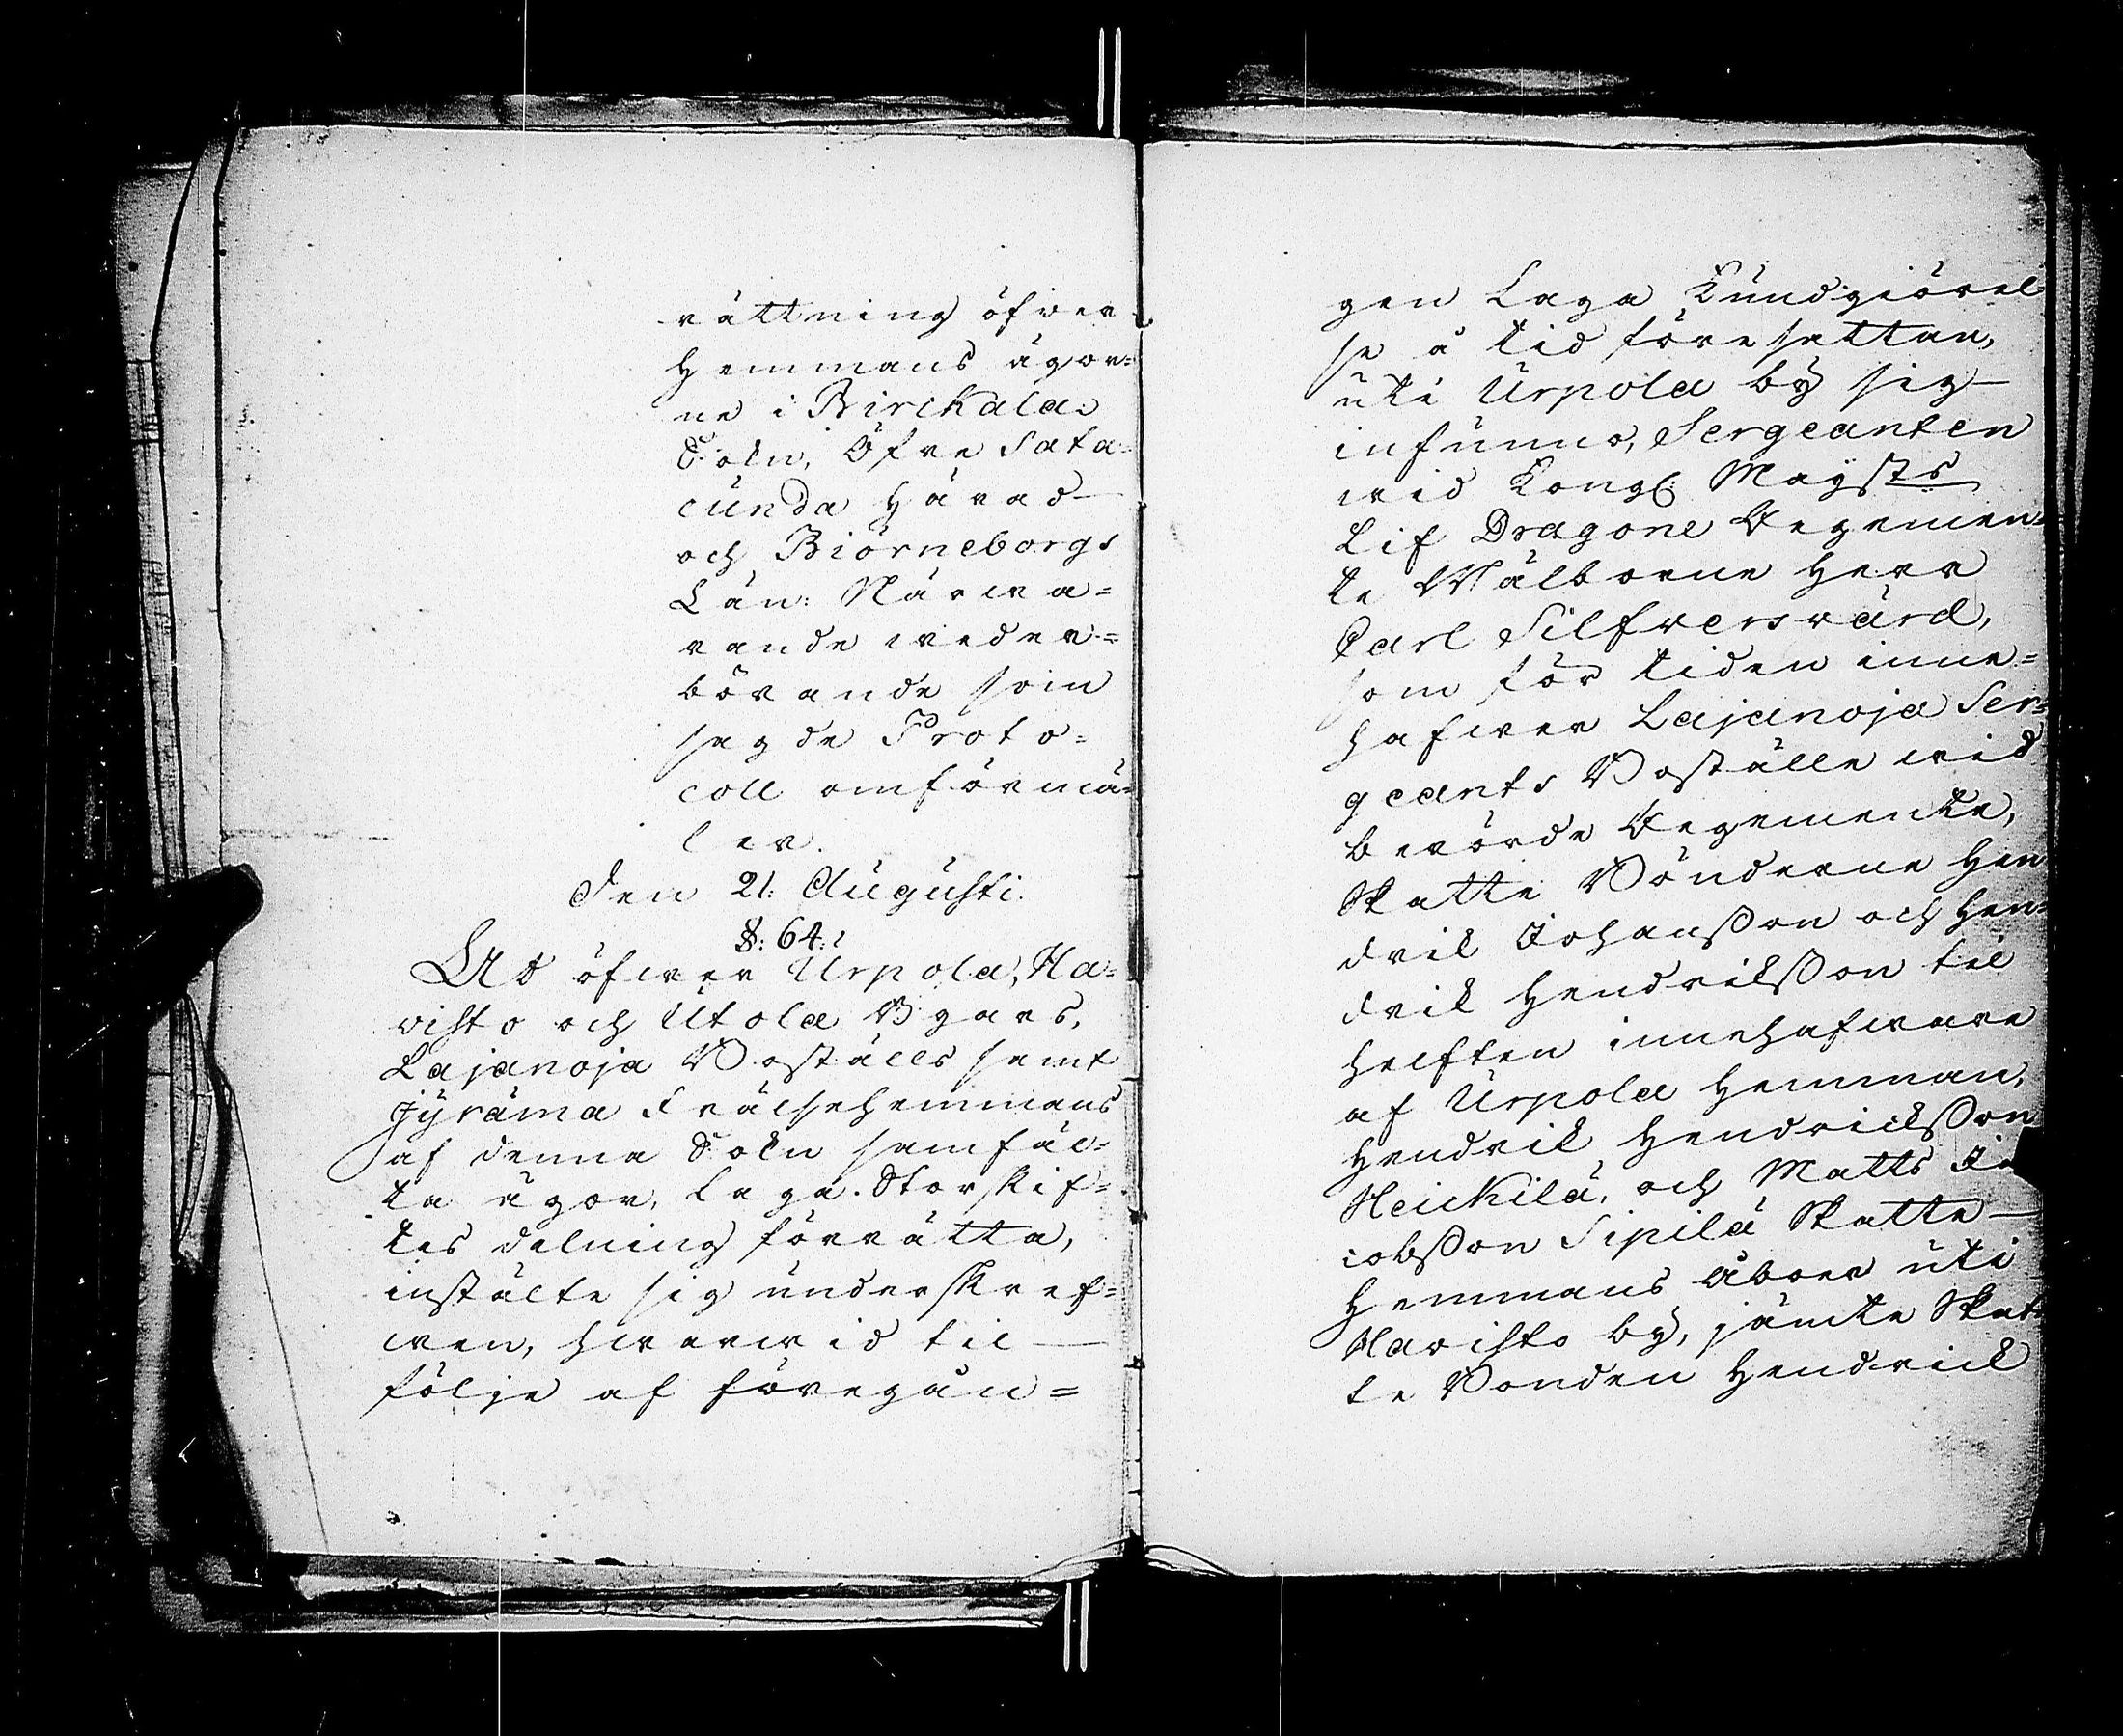 rättning öfwer
Hemmans ägor=
ne i Birckala
Sokn, Öfre Sata=
cunda Härad
och Biörneborgs
Län: Närwa=
rande weder=
börande som
sagde Proto=
coll omförmä=
ler.
Den 21: Augusti.
§: 64:
At öfwer Urpola, Ha=
visto och Utola Byars,
Lajanoja Boställs samt
Jyräma Frälsehemmans
af denna Sokn samfäl=
ta ägor, laga Storskif=
tes delning förrätta,
instälte sig underskref=
wen, hwarwid til
följe af föregån=
gen Laga Kundgiörel
se å tid föresattan,
uti Urpola by sig
infunno, Sergeanten
wid Kongl: Maysts
Lif Dragone Regemen=
te Wälborne Herr
Carl Silfversvärd,
som för tiden inne=
hafwer Lajanoja Ser=
geants Boställe wid
berörde Regemente,
Skatte Bönderne Hen
drik Johansson och Hen=
drik Hendriksson til
helften innehafware
af Urpola Hemman,
Hendrik Hendricksson
Heickilä, och Matts Ja
cobsson Sipilä Skatte
Hemmans Åboer uti
Havisto by, jämte Skat=
te Bonden Hendrick